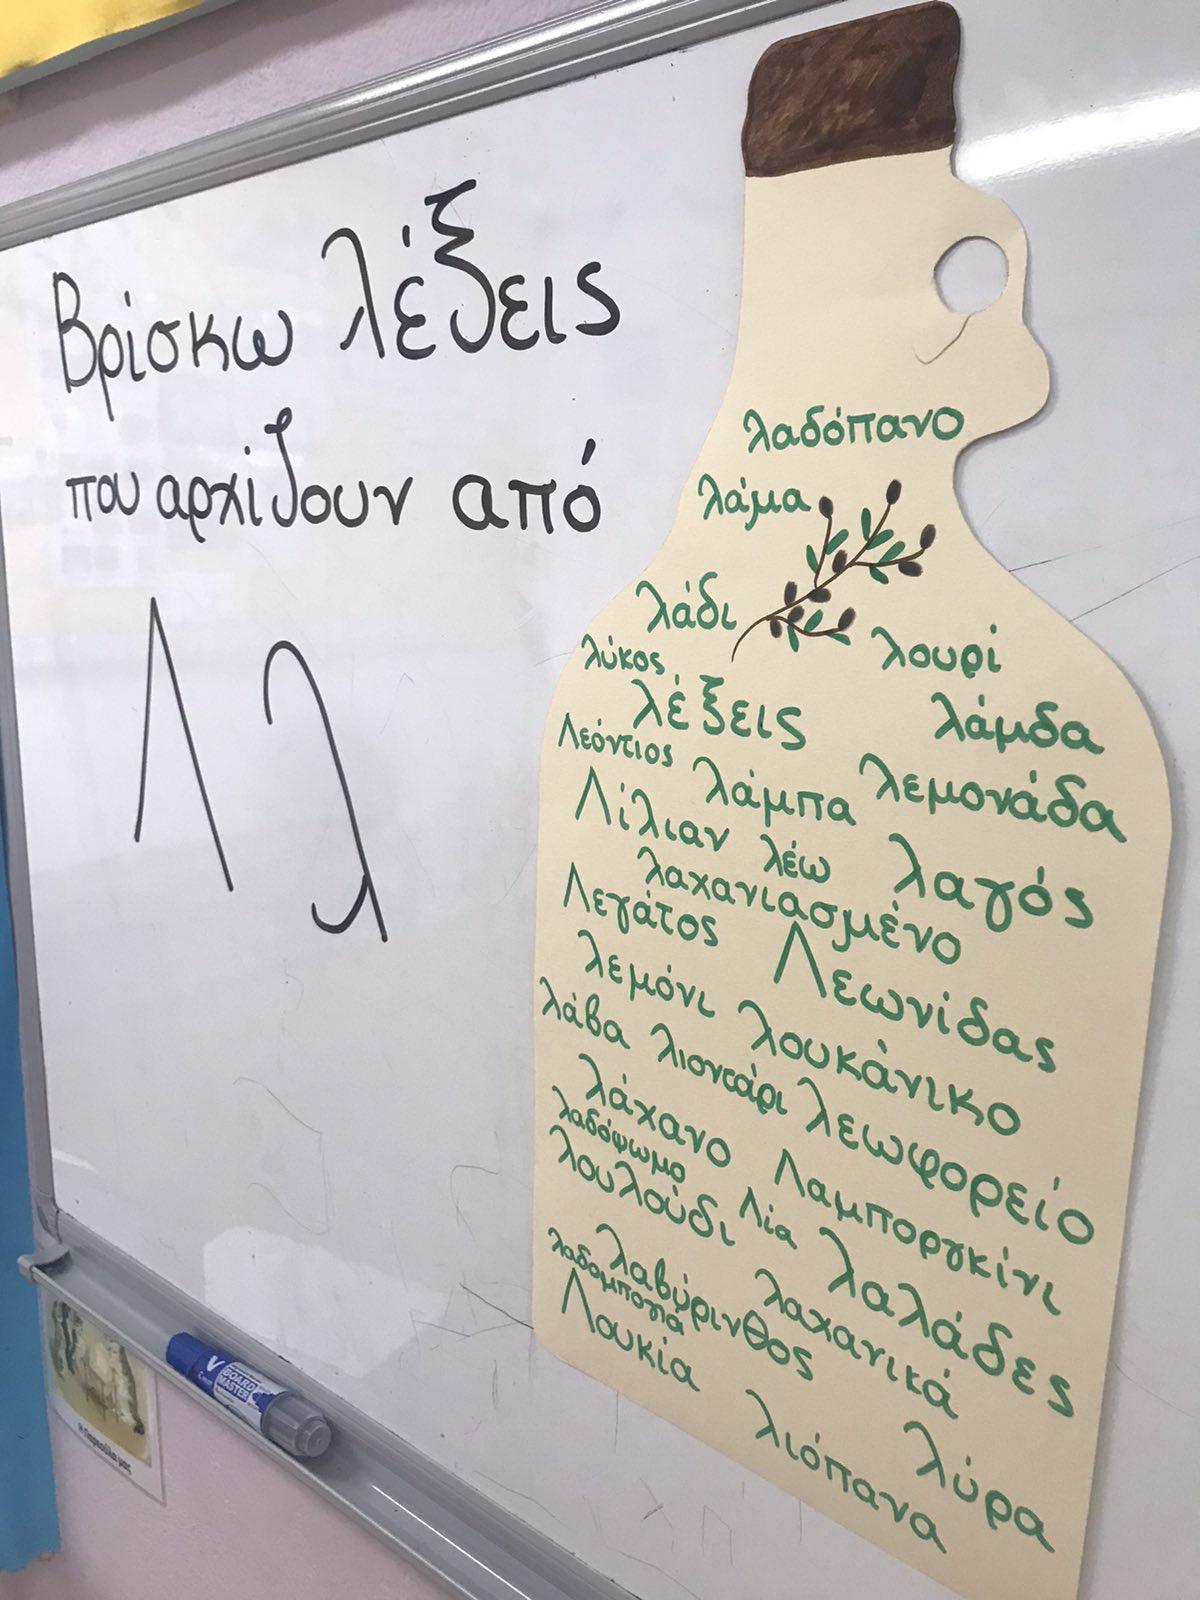 Βρίσκω λέξεις
που αρχίζουν από
Λ λ
λαδόπανο
λάμα
λάδι λουρί
λύκος
λέξεις λάμδα
Λεόντιος λάμπα λεμονάδα
Λίλιαν λέω λαγός
λαχανιασμένο
Λεγάτος Λεωνίδας
λεμόνι λουκάνικο
λάβα λιοντάρι λεωφορείο
λάχανο Λαμποργκίνι
λαδόψωμο Λία λαλάδες
λουλούδι
λαβύρινθος λαχανικά
λαδομπογιά
Λουκία λιόπανα λύρα
V BOARD MASTER
Η Παρεούλα μας